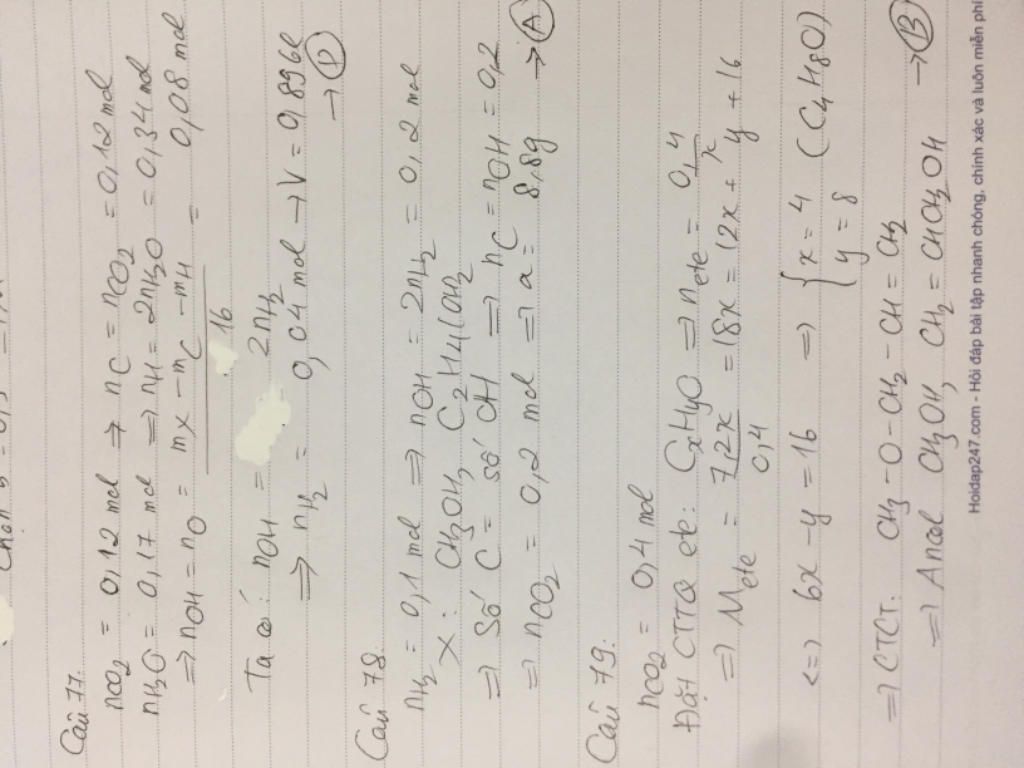 Câu 77.
nCO2 = 0,12 mol => nC = nCO2 = 0,12 mol
nH2O = 0,17 mol => nH = 2nH2O = 0,34 mol
=> nOH = nO = mX - mC - mH / 16 = 0,08 mol
Ta có: nOH = 2nH2
=> nH2 = 0,04 mol → V = 0,896l
→ D
Câu 78.
nH2 = 0,1 mol => nOH = 2nH2 = 0,2 mol
X: CH3OH, C2H4(OH)2
=> Số C = số OH => nC = nOH = 0,2
=> nCO2 = 0,2 mol => a = 8,8g → A
Câu 79:
nCO2 = 0,4 mol
Đặt CTTQ ete: CxHyO => nete = 0,4/x
=> Mete = 7,2x/0,4 = 18x = 12x + y + 16
<=> 6x - y = 16 => { x = 4 y = 8 (C4H8O)
=> CTCT: CH3-O-CH2-CH=CH2
=> Ancol CH3OH, CH2=CHCH2OH → B
Hoidap247.com - Hỏi đáp bài tập nhanh chóng, chính xác và luôn miễn phí